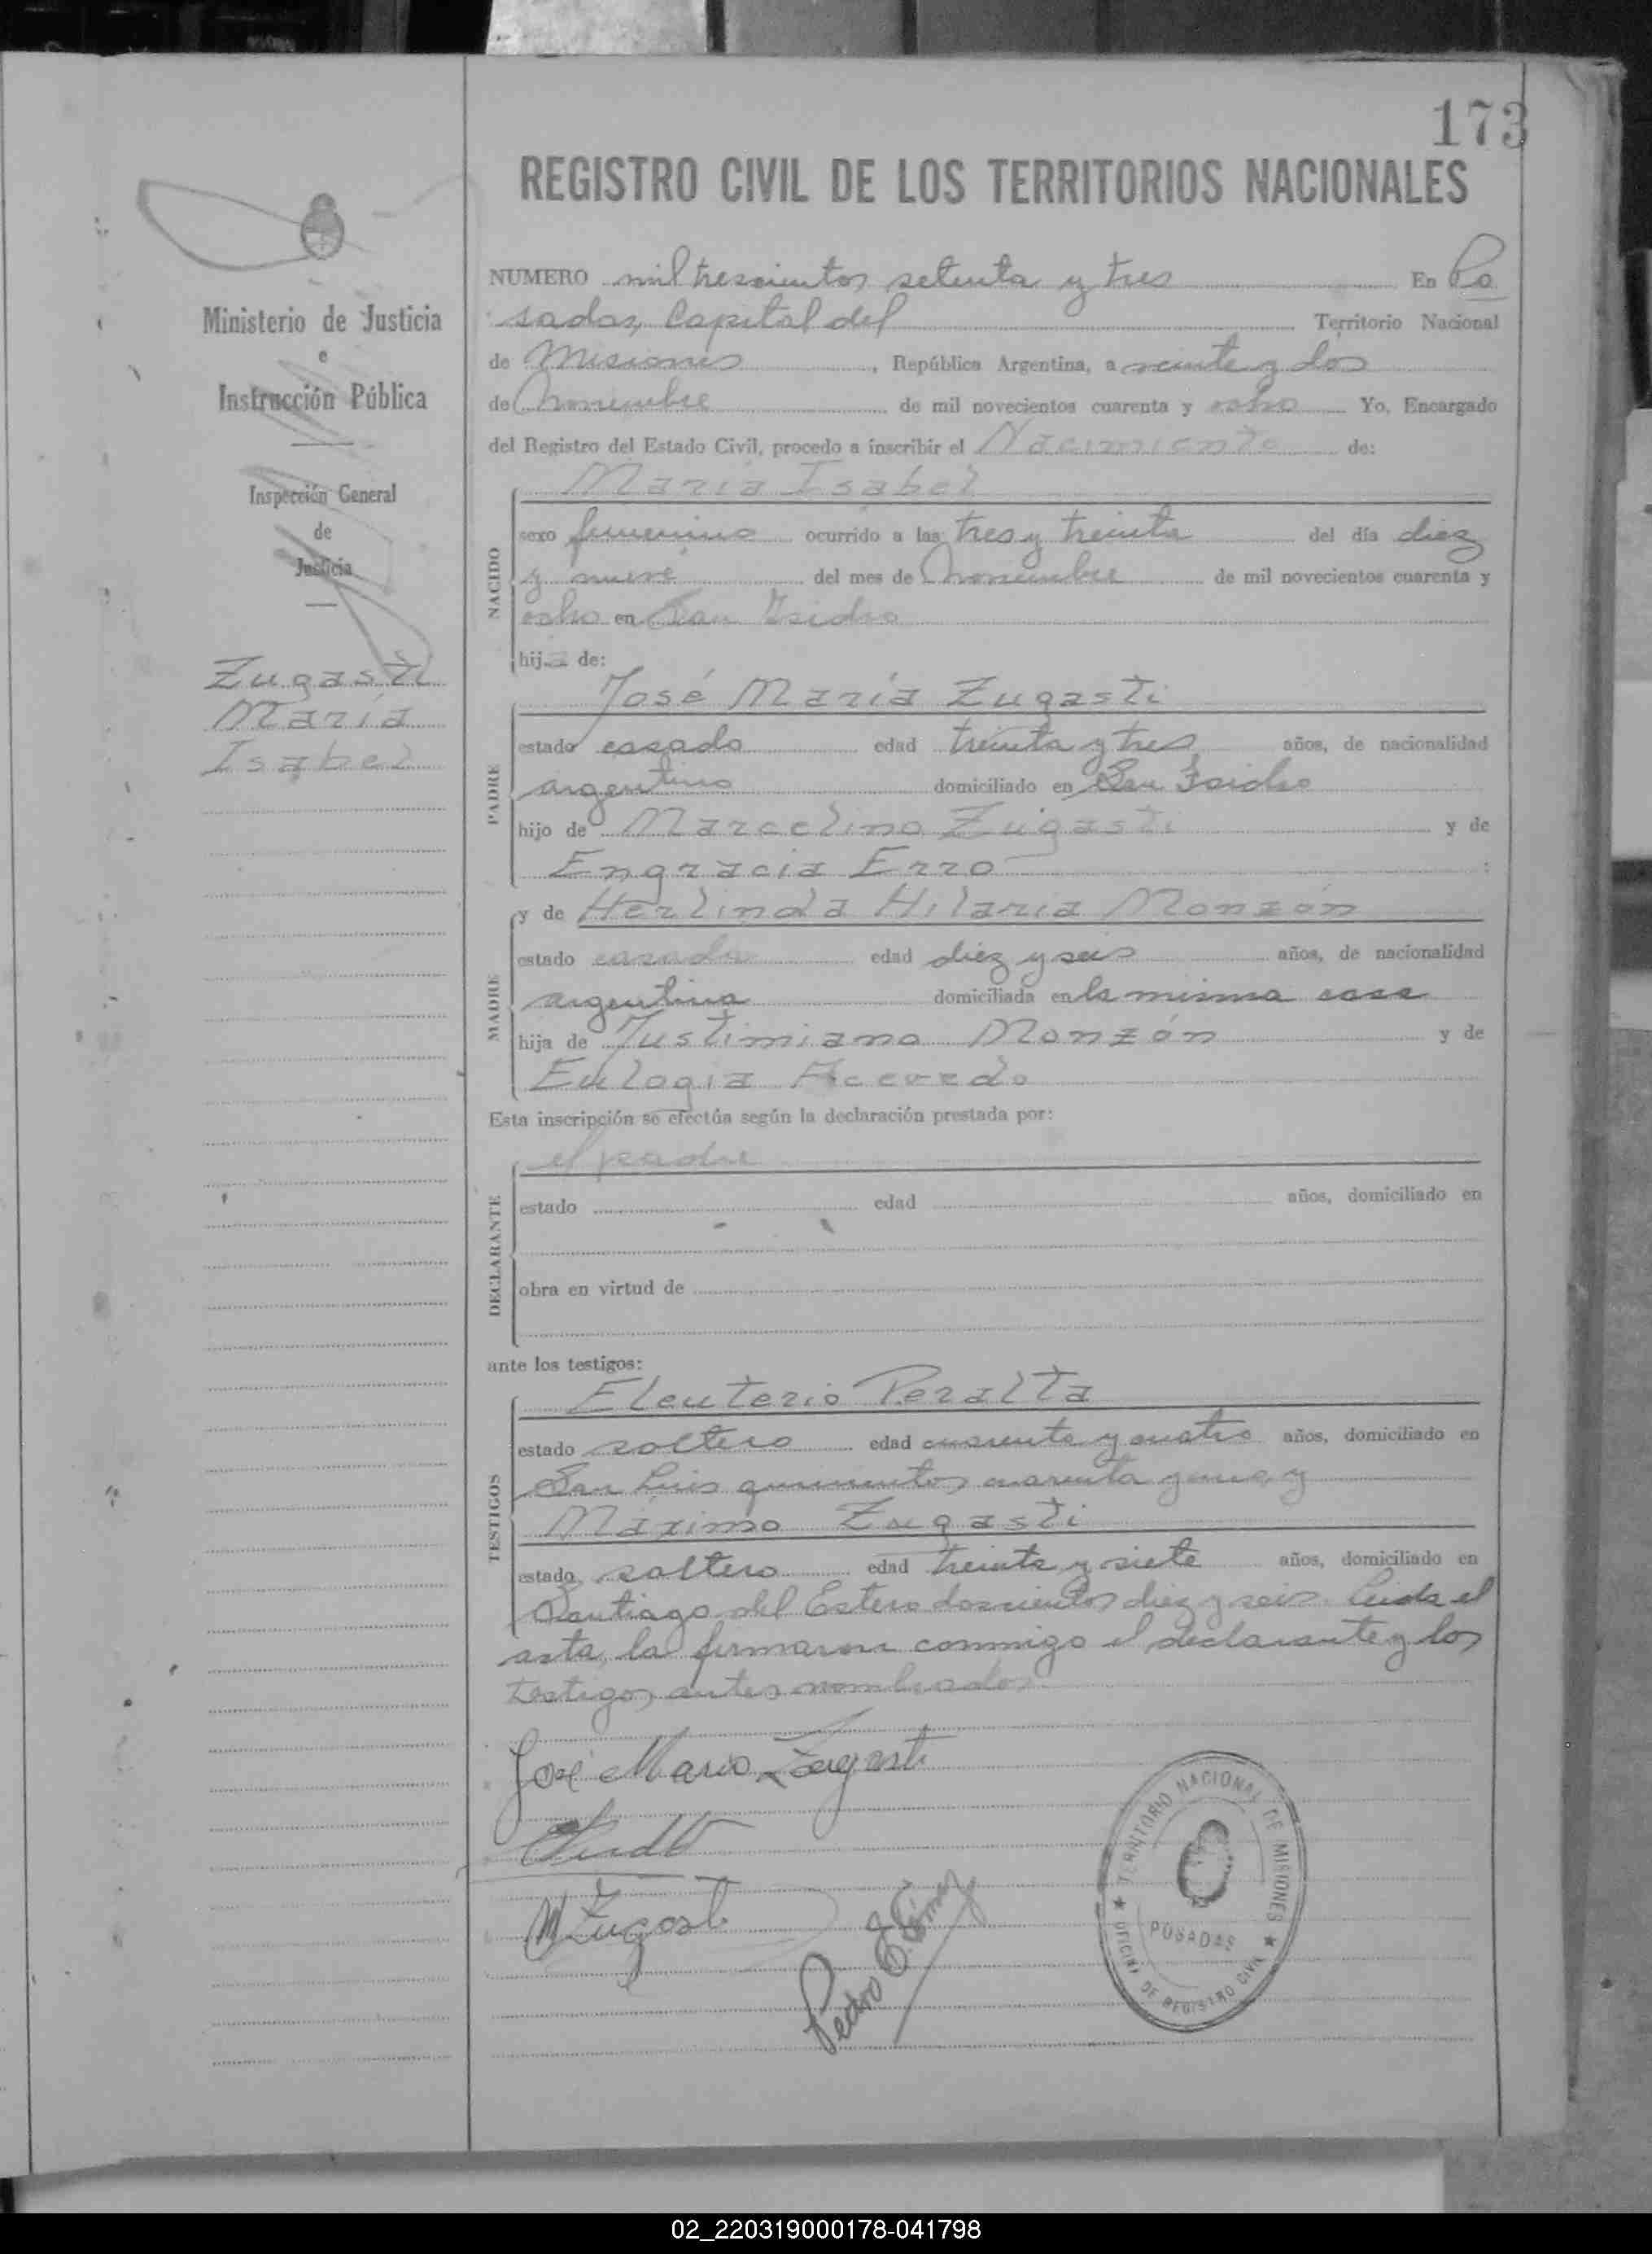 173
REGISTRO CIVIL DE LOS TERRITORIOS NACIONALES
Ministerio de Justicia
e
Instrucción Pública
Inspección General
de
Justicia
Zugasti
María
Isabel
NUMERO mil trescientos setenta y tres En Po
sadas, Capital del Territorio Nacional
de Misiones, República Argentina, a veinte y dos
de Noviembre de mil novecientos cuarenta y ocho Yo, Encargado
del Registro del Estado Civil, procedo a inscribir el Nacimiento de:
María Isabel
NACIDO
sexo femenino ocurrido a las tres y treinta del día diez
y nueve del mes de Noviembre de mil novecientos cuarenta y
ocho en San Isidro
hij de:
José María Zugasti
PADRE
estado casado edad treinta y tres años, de nacionalidad
argentino domiciliado en San Isidro
hijo de Marcelino Zugasti y de
Engracia Erro
y de Herlinda Hilaria Monzón
MADRE
estado casada edad diez y seis años, de nacionalidad
argentina domiciliada en la misma casa
hija de Justimiano Monzón y de
Eulogia Acevedo
Esta inscripción se efectúa según la declaración prestada por:
el padre
DECLARANTE
estado edad años, domiciliado en
obra en virtud de
ante los testigos:
Eleuterio Peralta
TESTIGOS
estado soltero edad cuarenta y cuatro años, domiciliado en
San Luis quinientos cuarenta y uno, y
Máximo Zugasti
estado soltero edad treinta y siete años, domiciliado en
Santiago del Estero doscientos diez y seis. Leida el
acta, la firmaron conmigo el declarante y los
testigos antes nombrados.
José María Zugasti
M Zugasti
Pedro
TERRITORIO NACIONAL DE MISIONES
POSADAS
OFICINA DE REGISTRO CIVIL
02_220319000178-041798